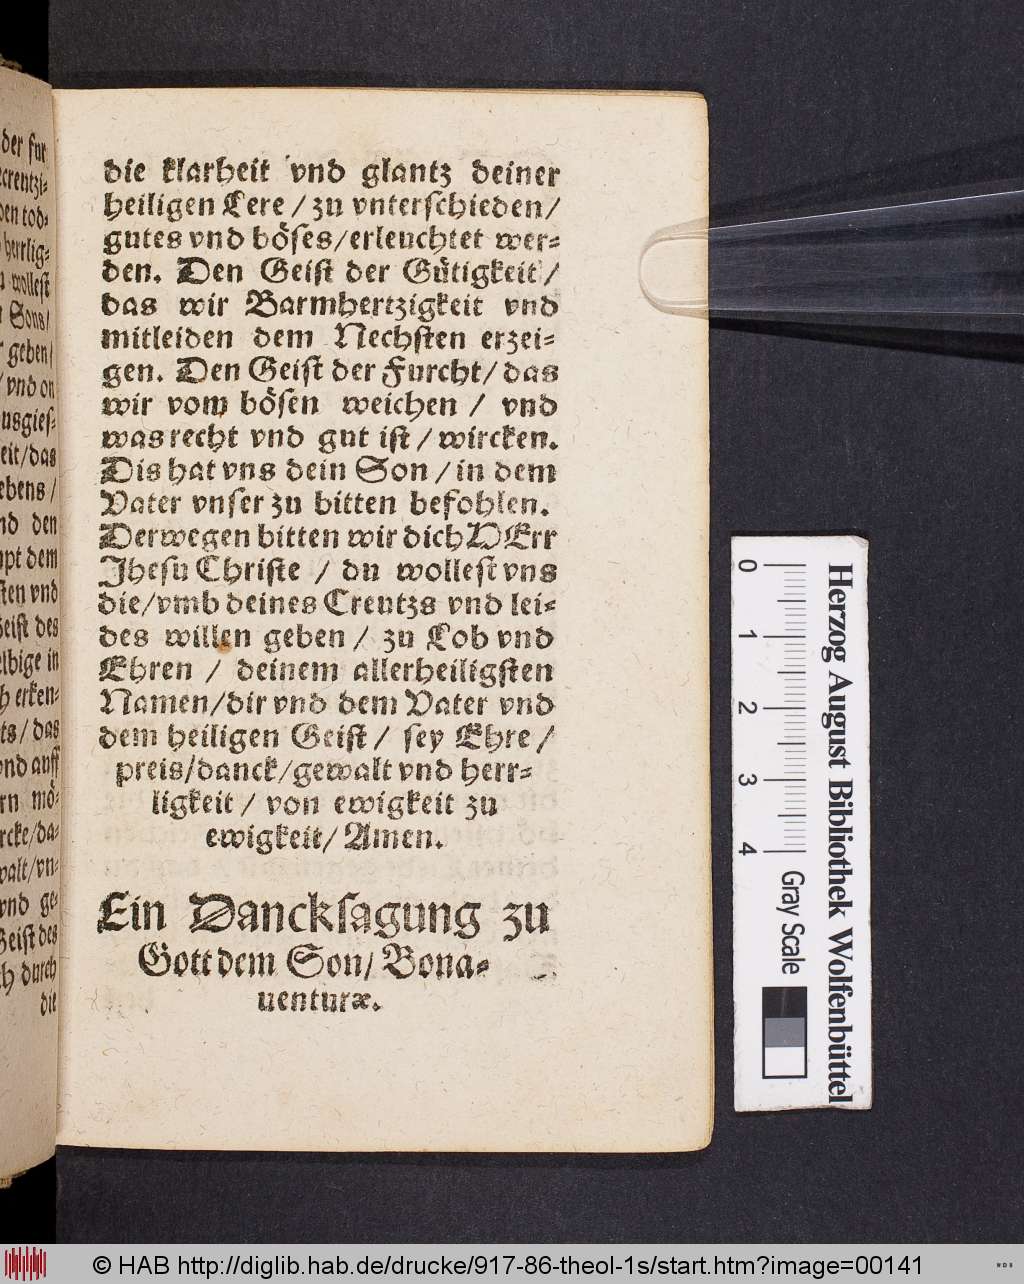 die klarheit vnd glantz deiner
heiligen Lere / zu vnterschieden /
gutes vnd böses / erleuchtet wer⸗
den. Den Geist der Gütigkeit /
das wir Barmhertzigkeit vnd
mitleiden dem Nechsten erzei⸗
gen. Den Geist der Furcht / das
wir vom bösen weichen / vnd
was recht vnd gut ist / wircken.
Dis hat vns dein Son / in dem
Vater vnser zu bitten befohlen.
Derwegen bitten wir dich HErr
Jhesu Christe / du wollest vns
die / vmb deines Creutzs vnd lei⸗
des willen geben / zu Lob vnd
Ehren / deinem allerheiligsten
Namen / dir vnd dem Vater vnd
dem heiligen Geist / sey Ehre /
preis / danck / gewalt vnd herr⸗
ligkeit / von ewigkeit zu
ewigkeit / Amen.
Ein Dancksagung zu
Gott dem Son / Bona⸗
uenturæ.
der fur
creutzi⸗
den tod⸗
herrlig⸗
wollest
Sons /
geben /
/ vnd on
ausgies⸗
eit / das
ebens /
nd den
mpt dem
sten vnd
Geist des
elbige in
ch erken⸗
ts / das
vnd auff
rn mö⸗
rcke / da⸗
walt / vn⸗
vnd ge⸗
Geist des
ch durch
die
0 1 2 3 4
Gray Scale
Herzog August Bibliothek Wolfenbüttel
© HAB http://diglib.hab.de/drucke/917-86-theol-1s/start.htm?image=00141